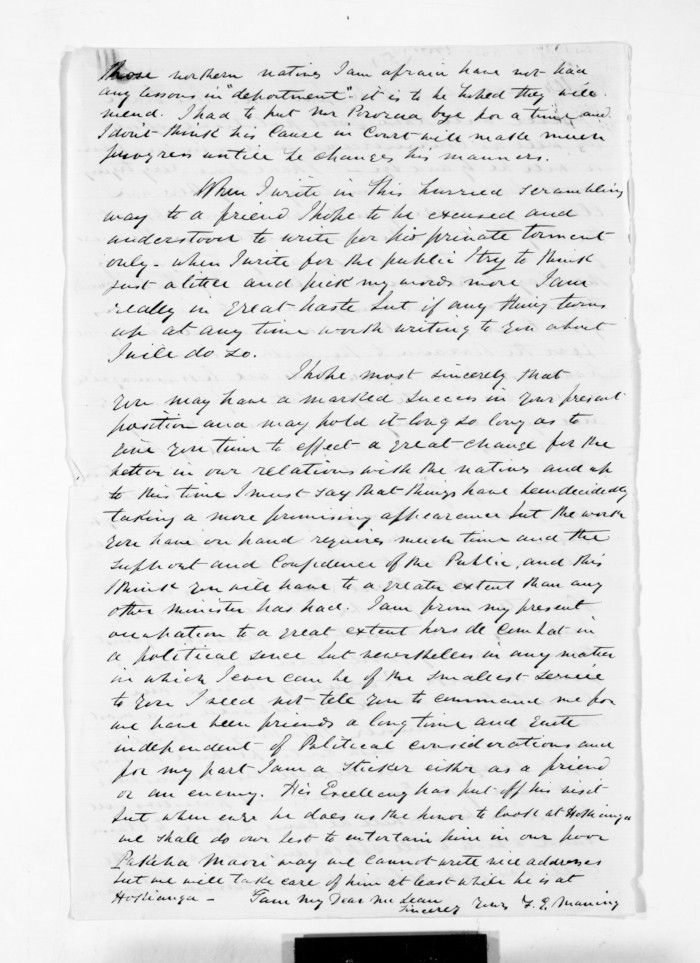 Those northern natives I am afraid have not had
any lessons in "deportment" - it is to be hoped they will
mend. I had to put Mr bye for a time and
I don't think his Cause in Court will make much
progress untill he changes his manners.
When I write in this hurried scrambling
way to a friend I hope to be excused and
understood to write for his private torment
only - when I write for the public I try to think
just a little and pick my words more I am
really in great haste but if any thing turns
up at any time worth writing to you about
I will do so.
I hope most sincerely that
you may have a marked success in your present
position and may hold it long so long as to
give you time to effect a great change for the
better in our relations with the natives and up
to this time I must say that things have been decidedly
taking a more promising appearance but the work
you have on hand requires much time and the
support and Confidence of the Public, and this
I think you will have to a greater extent than any
other minister has had. I am from my present
occupation to a great extent hors de combat in
a political sence but nevertheless in any matter
in which I ever can be of the smallest service
to you I need not tell you to command me for
we have been friends a long time and quite
independent of Political considerations and
for my part I am a sticker either as a friend
or an enemy. His Excellency has put off his visit
but when ever he does us the honor to look at Hokianga
we shall do our best to entertain him in our poor
Pakeha Maori way we cannot write nice addresses
but we will take care of him at least while he is at
Hokianga - I am my Dear McLean
Sincerely yours F. E. Maning